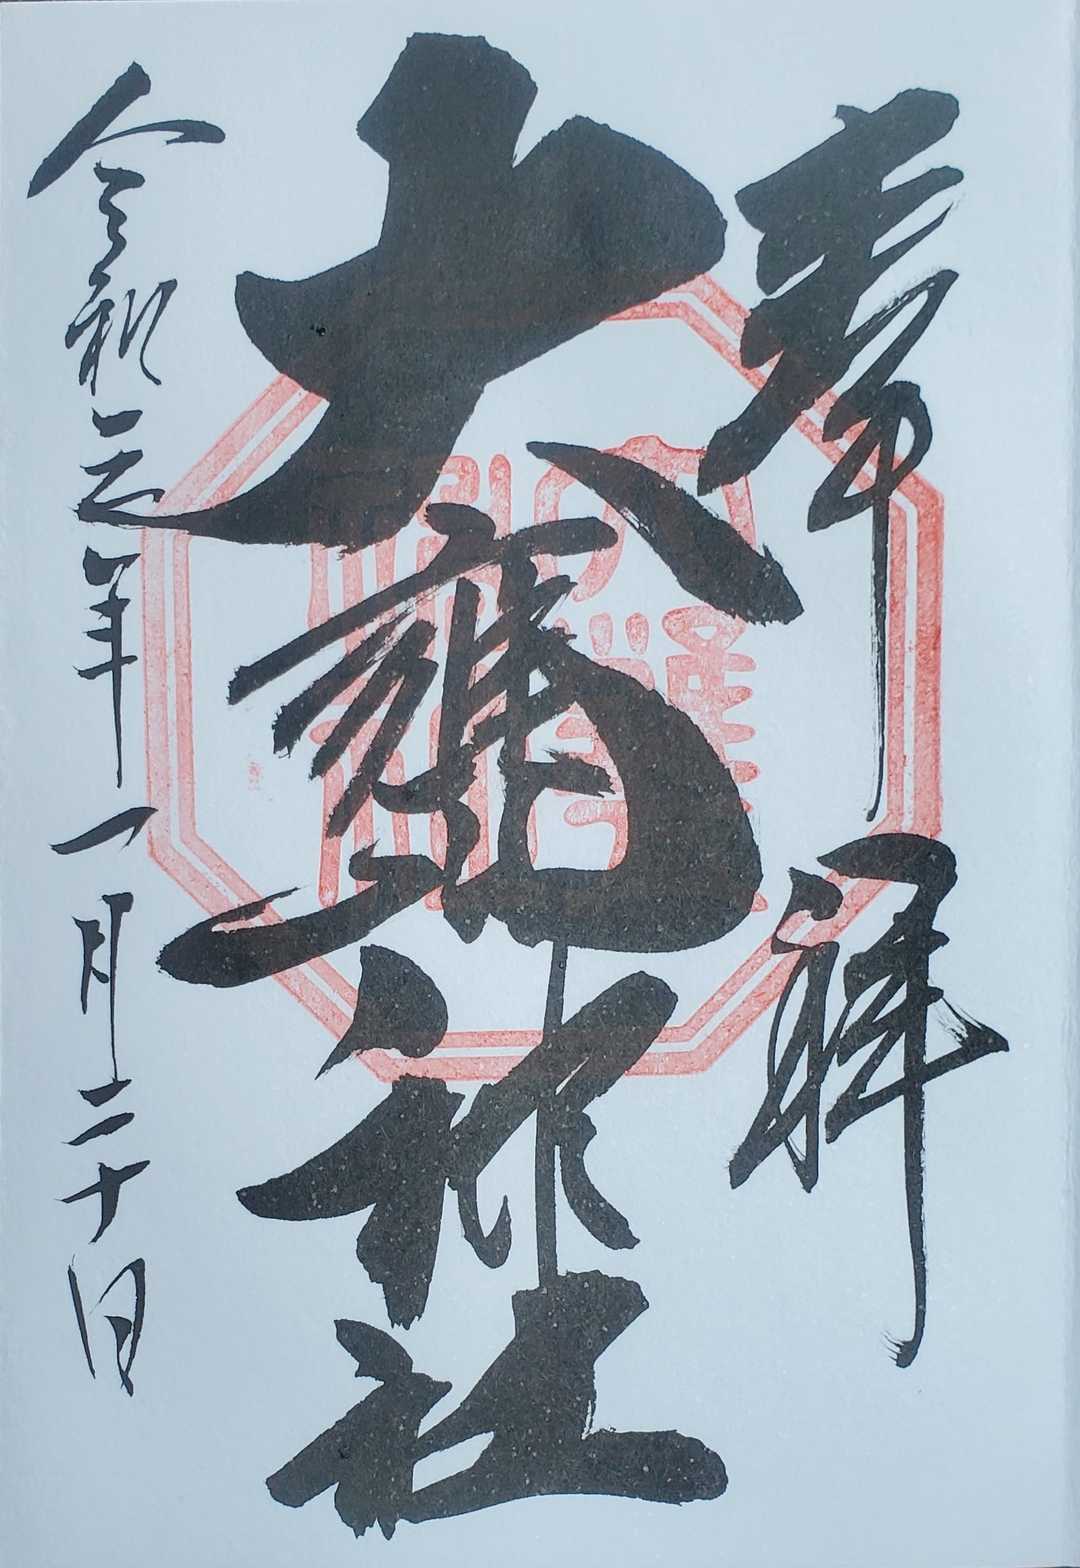 奉拝
大 神社
令和三年一月二十日